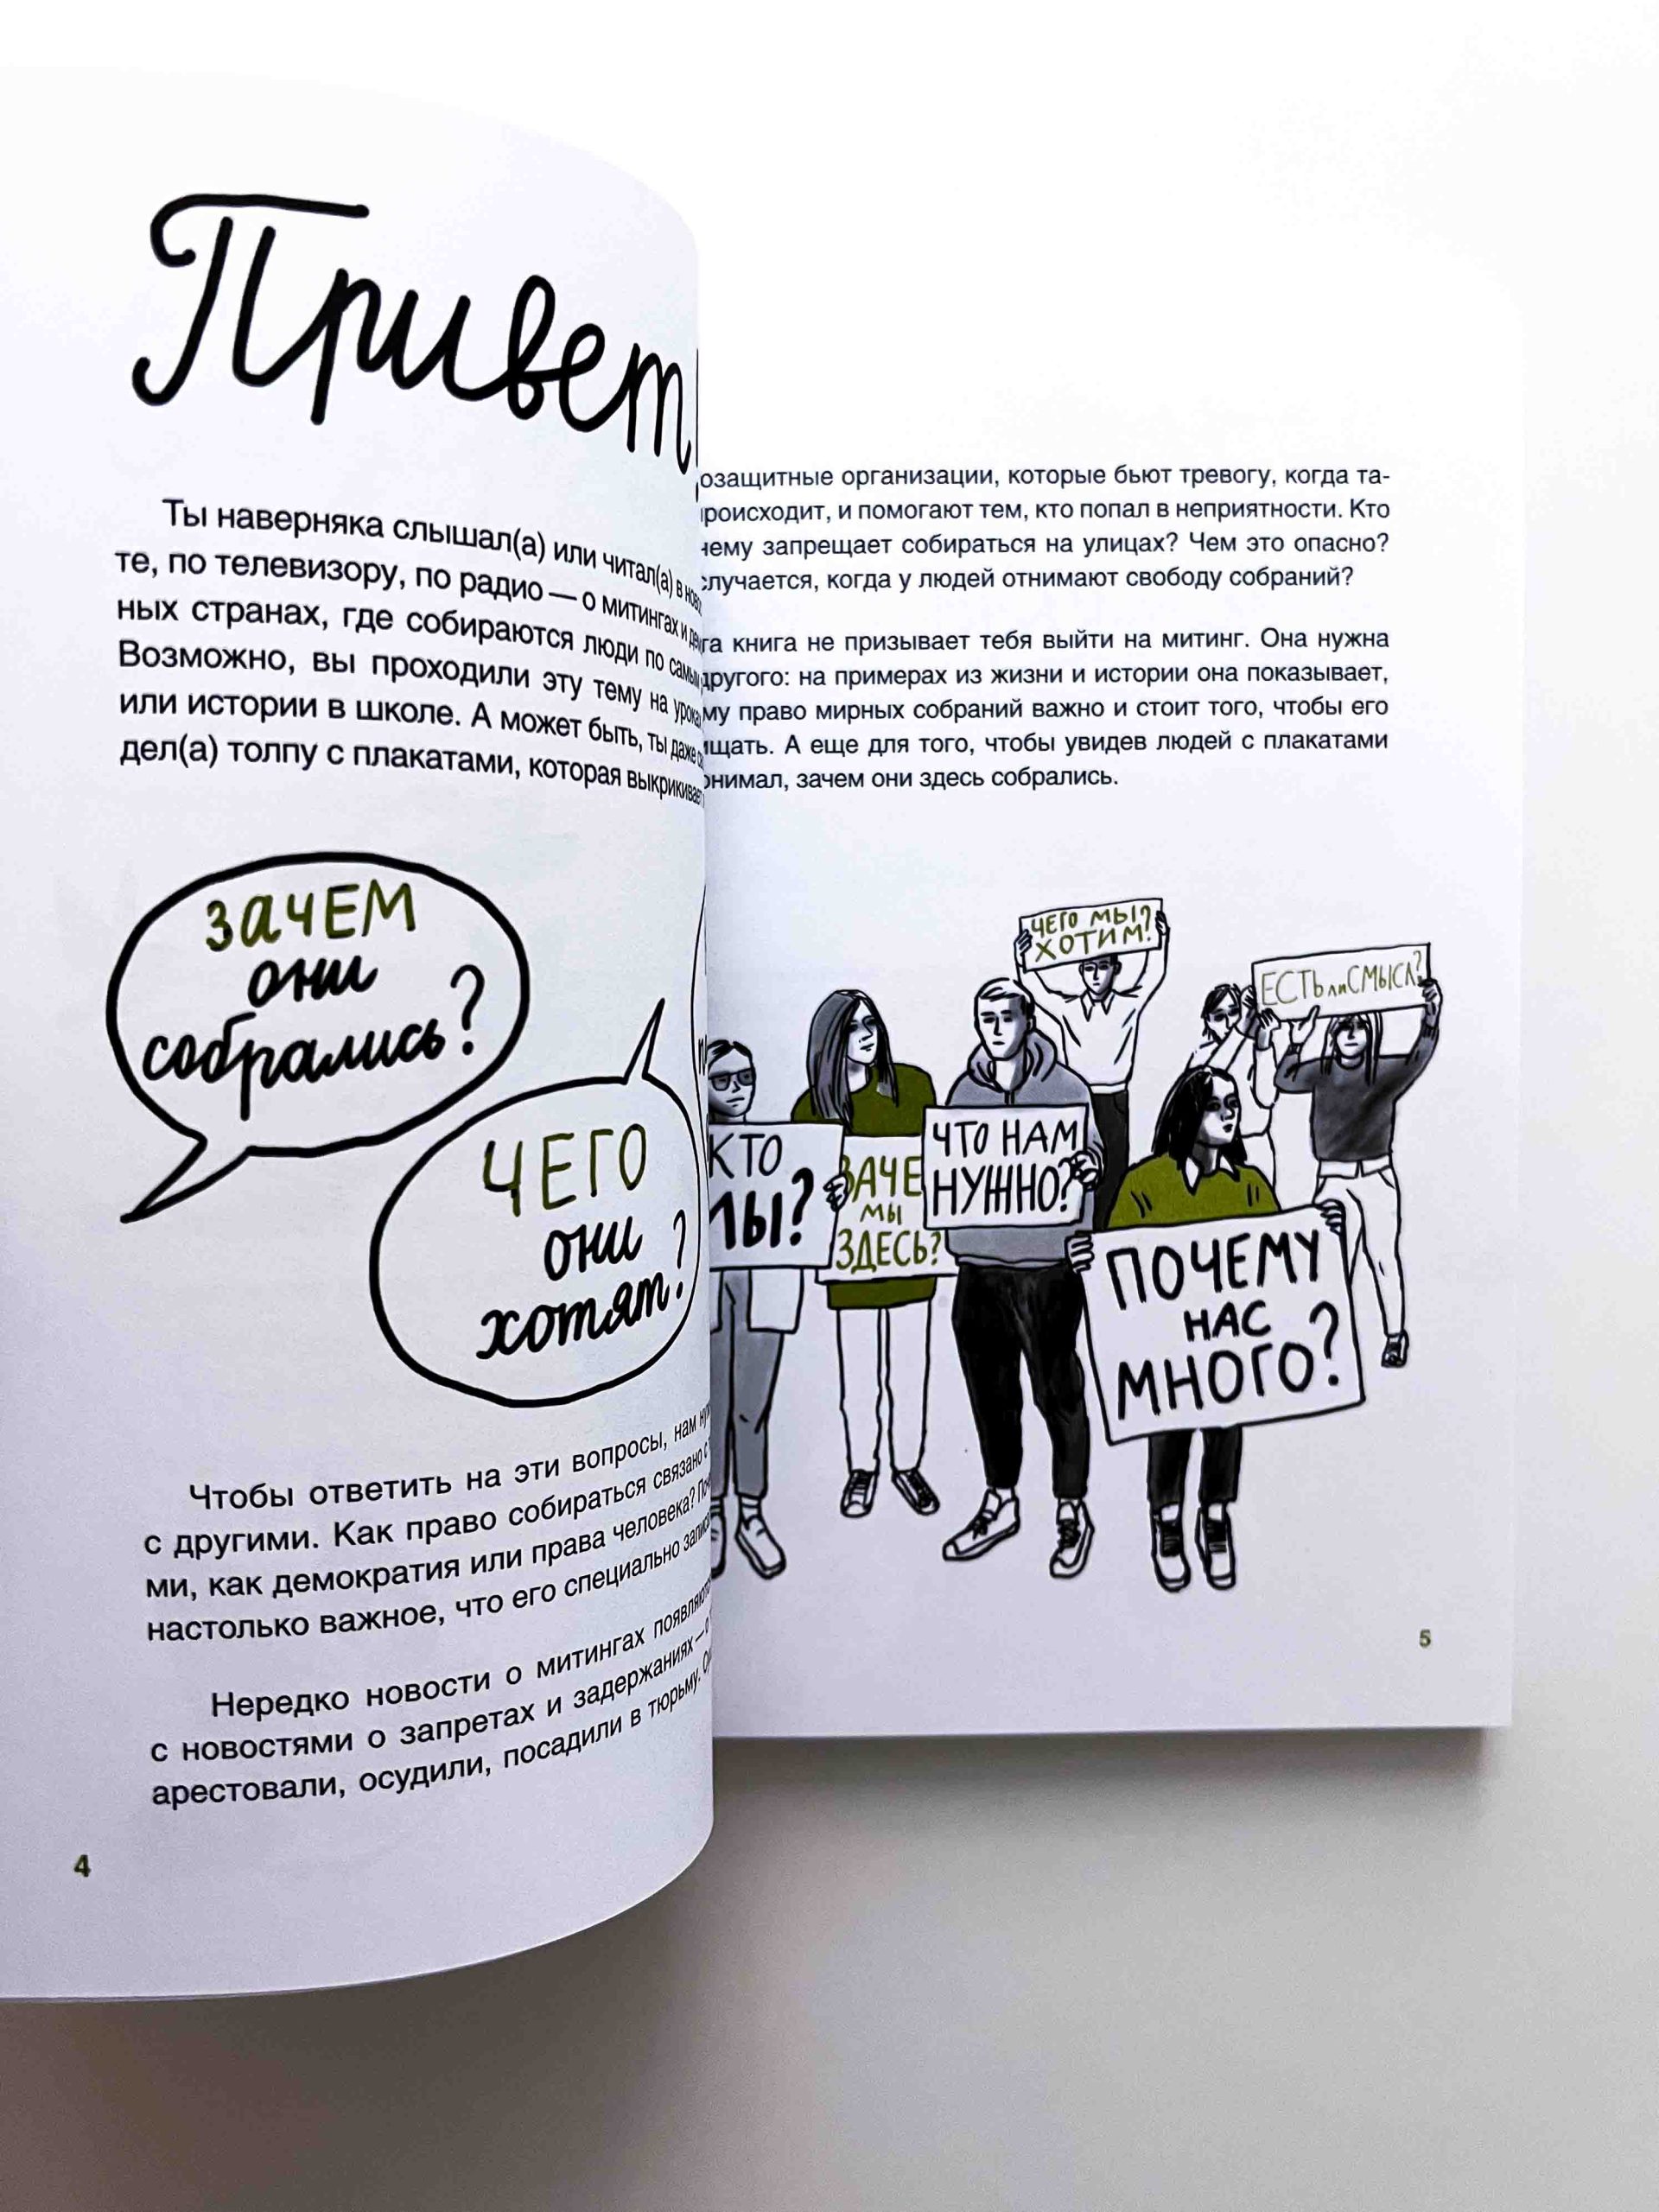 Привет!
Ты наверняка слышал(а) или читал(а) в
те, по телевизору, по радио — о митингах и
ных странах, где собираются люди по
Возможно, вы проходили эту тему на
или истории в школе. А может быть, ты даже
дел(а) толпу с плакатами, которая
ЗАЧЕМ
они
собрались?
ЧЕГО
они
хотят?
Чтобы ответить на эти вопросы, нам
с другими. Как право собираться связано с
ми, как демократия или права человека?
настолько важное, что его специально
Нередко новости о митингах
с новостями о запретах и задержаниях —
арестовали, осудили, посадили в тюрьму.
4
озащитные организации, которые бьют тревогу, когда та-
роисходит, и помогают тем, кто попал в неприятности. Кто
чему запрещает собираться на улицах? Чем это опасно?
случается, когда у людей отнимают свободу собраний?
та книга не призывает тебя выйти на митинг. Она нужна
другого: на примерах из жизни и истории она показывает,
му право мирных собраний важно и стоит того, чтобы его
ищать. А еще для того, чтобы увидев людей с плакатами
онимал, зачем они здесь собрались.
ЧЕГО МЫ?
ХОТИМ?
ЕСТЬ ли СМЫСЛ?
КТО
МЫ?
ЗАЧЕ
МЫ
ЗДЕСЬ?
ЧТО НАМ
НУЖНО?
ПОЧЕМУ
НАС
МНОГО?
5